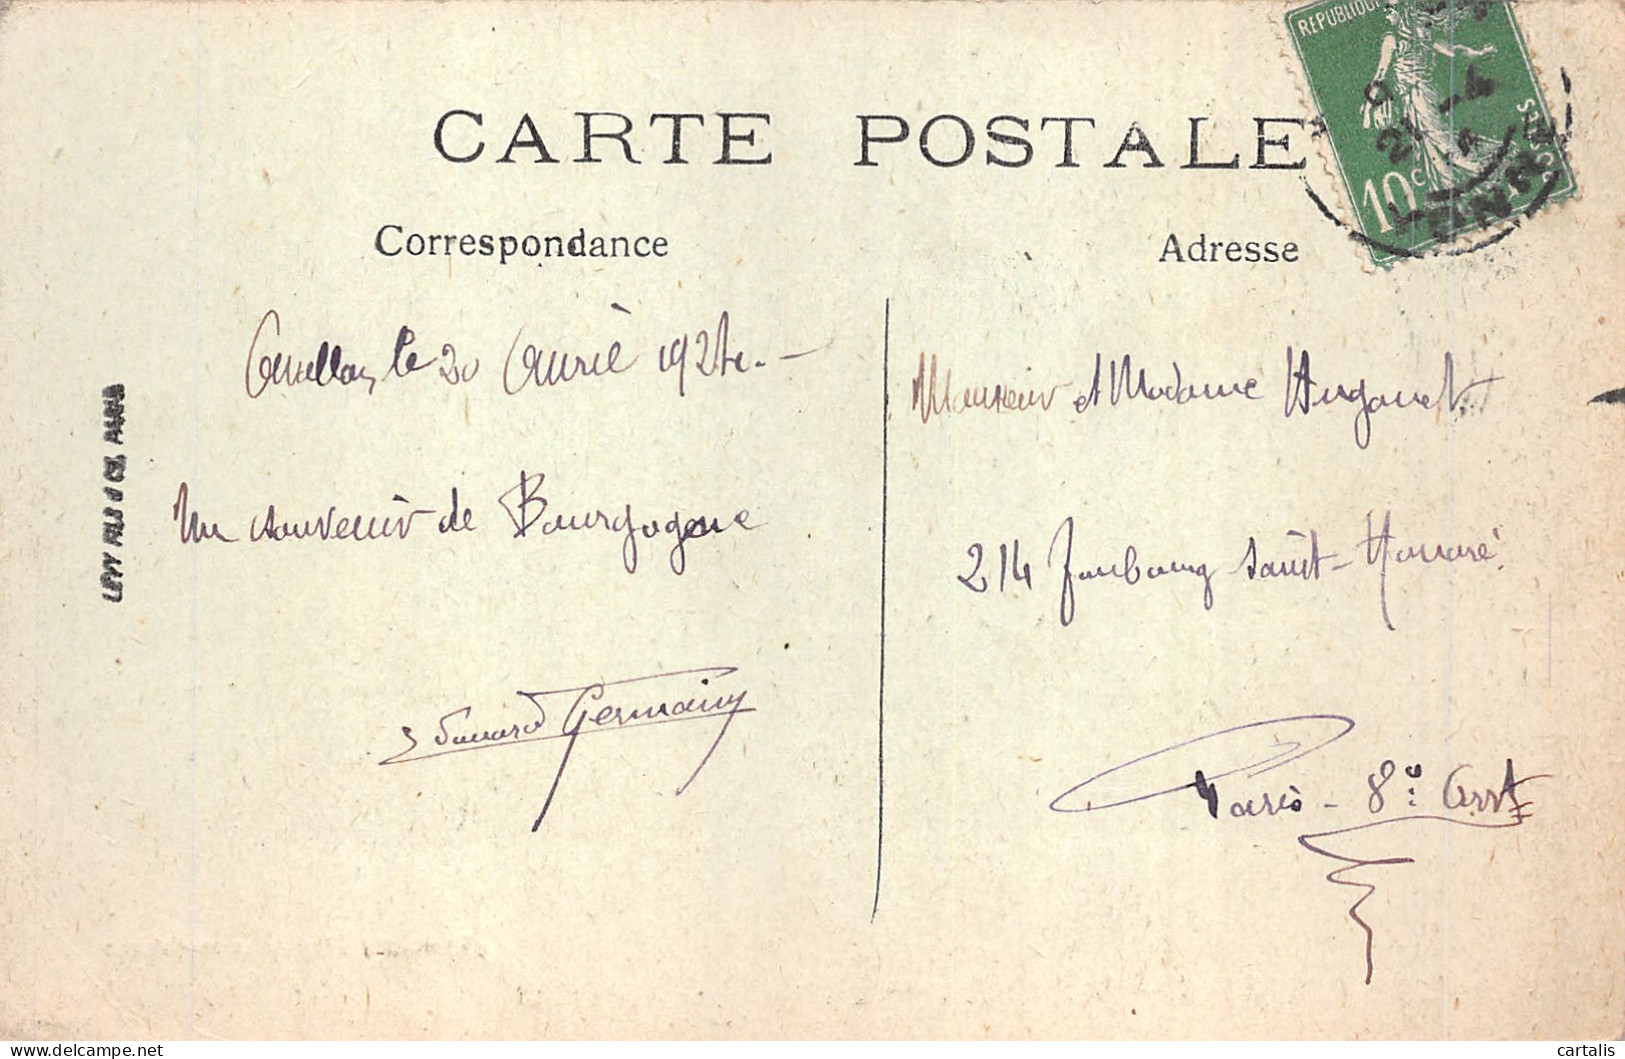 CARTE POSTALE
Correspondance
Adresse
REPUBLIQUE
POSTES
10c
le 20 Avril 1924. -
Un souvenir de Bourgogne
Edouard Germain
Monsieur et Madame Huganet
214 Faubourg Saint-Honoré
Paris - 8e Arrt
LÉVY FILS & Cie, PARIS
cartalis